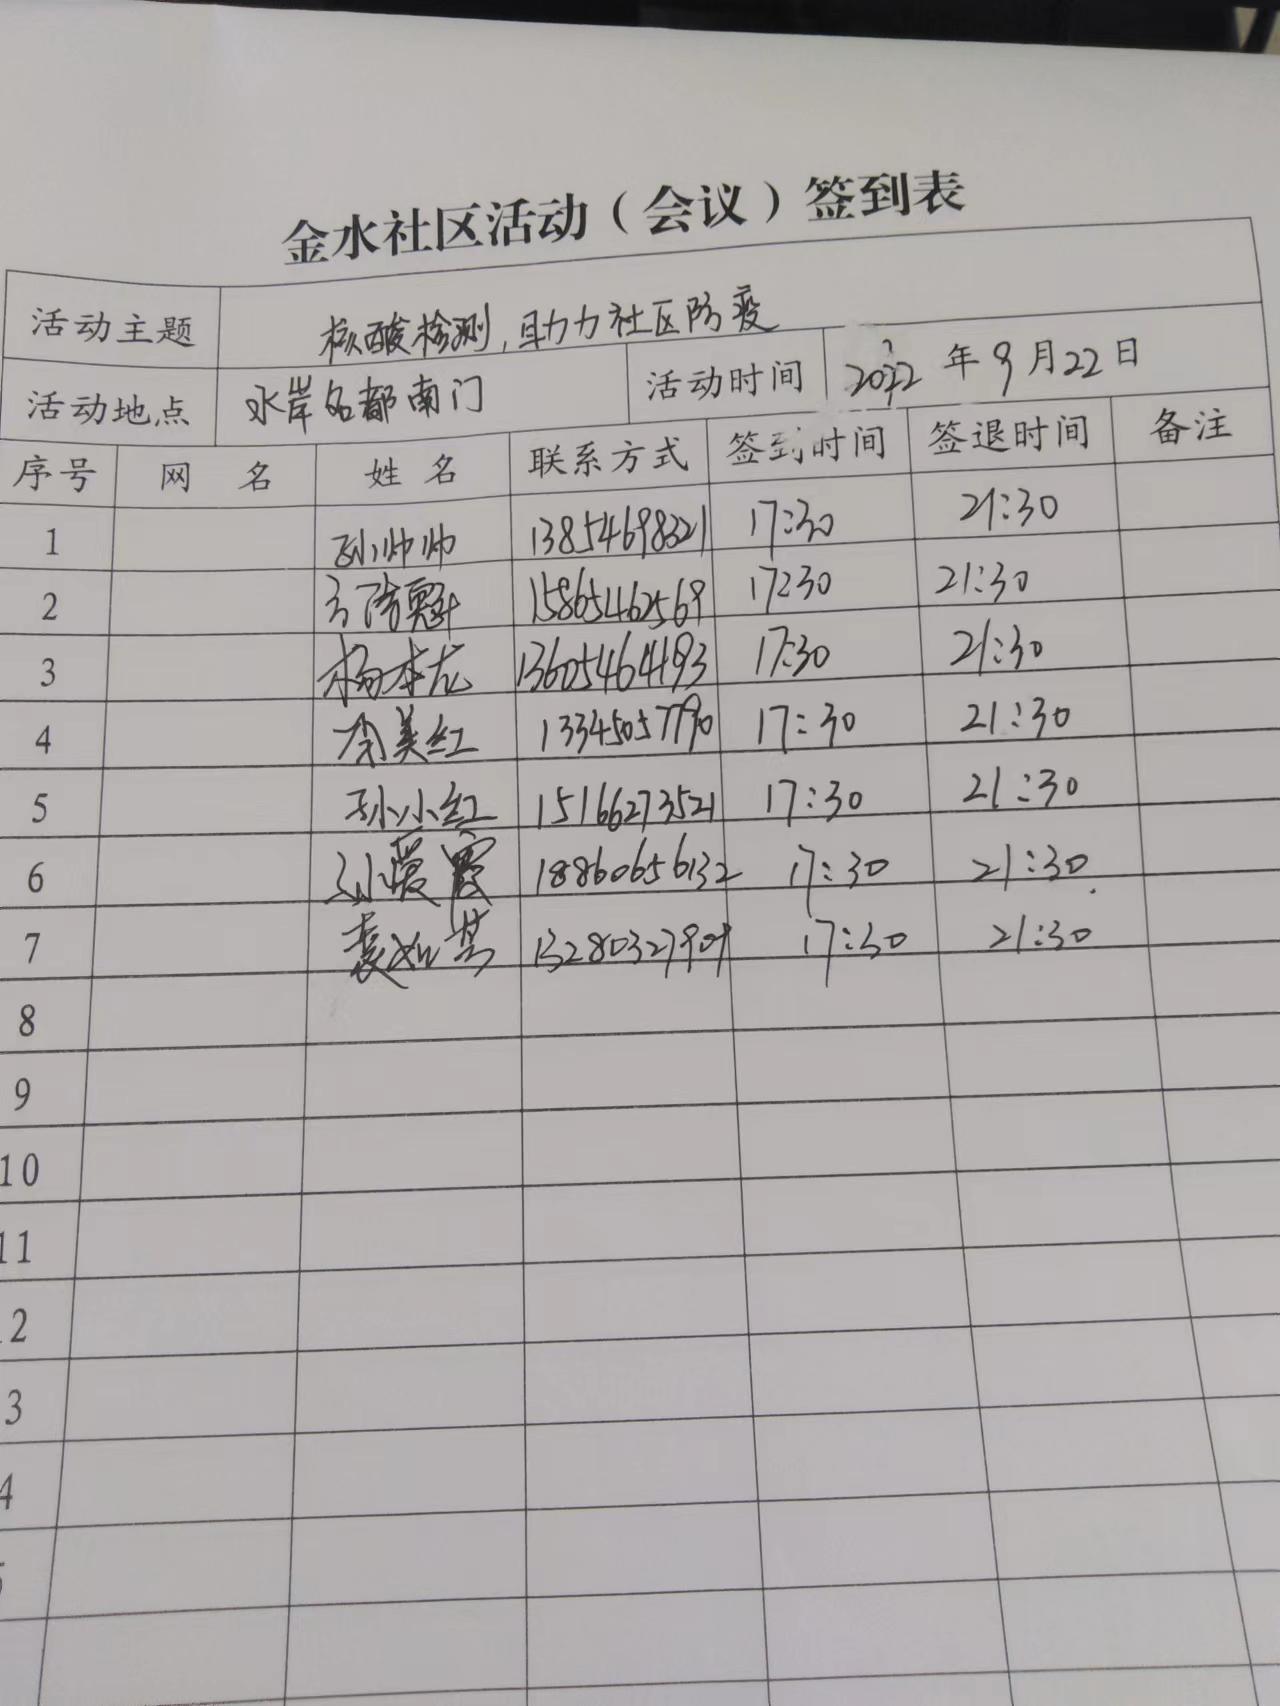 金水社区活动（会议）签到表
活动主题 核酸检测,助力社区防疫
活动地点 水岸名都南门 活动时间 2022年9月22日
序号 网 名 姓 名 联系方式 签到时间 签退时间 备注
1 孙帅帅 13854698321 17:30 21:30
2 15865462569 17:30 21:30
3 杨本龙 13605464193 17:30 21:30
4 李美红 13345057790 17:30 21:30
5 孙小红 15166273521 17:30 21:30
6 孙爱霞 18860656132 17:30 21:30
7 13280327909 17:30 21:30
8
9
10
11
2
3
4